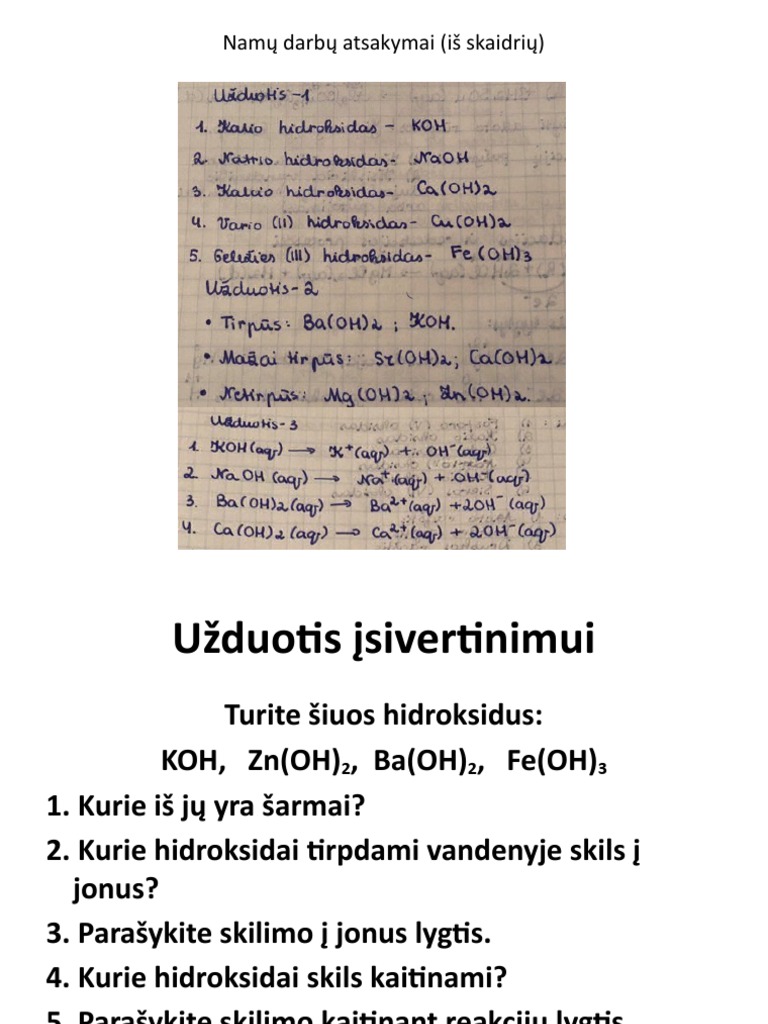 Namų darbų atsakymai (iš skaidrių)
Užduotis-1
1. Kalio hidroksidas - KOH
2. Natrio hidroksidas- NaOH
3. Kalcio hidroksidas- Ca(OH)2
4. Vario (II) hidroksidas- Cu(OH)2
5. Geležies (III) hidroksidas- Fe(OH)3
Užduotis-2
• Tirpūs: Ba(OH)2 ; KOH.
• Mažai tirpūs: Sr(OH)2; Ca(OH)2
• Netirpūs: Mg(OH)2 ; Zn(OH)2.
Užduotis-3
1. KOH(aq) → K⁺(aq) + OH⁻(aq)
2. NaOH (aq) → Na⁺(aq) + OH⁻(aq)
3. Ba(OH)2(aq) → Ba²⁺(aq) +2OH⁻(aq)
4. Ca(OH)2(aq) → Ca²⁺(aq) + 2OH⁻(aq)
Užduotis įsivertinimui
Turite šiuos hidroksidus:
KOH, Zn(OH)₂, Ba(OH)₂, Fe(OH)₃
1. Kurie iš jų yra šarmai?
2. Kurie hidroksidai tirpdami vandenyje skils į
jonus?
3. Parašykite skilimo į jonus lygtis.
4. Kurie hidroksidai skils kaitinami?
5. Parašykite skilimo kaitinant reakcijų lygtis